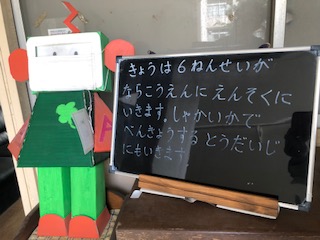 きょうは6ねんせいが
ならこうえんに えんそくに
いきます。しゃかいかで
べんきょうする とうだいじ
にもいきます。